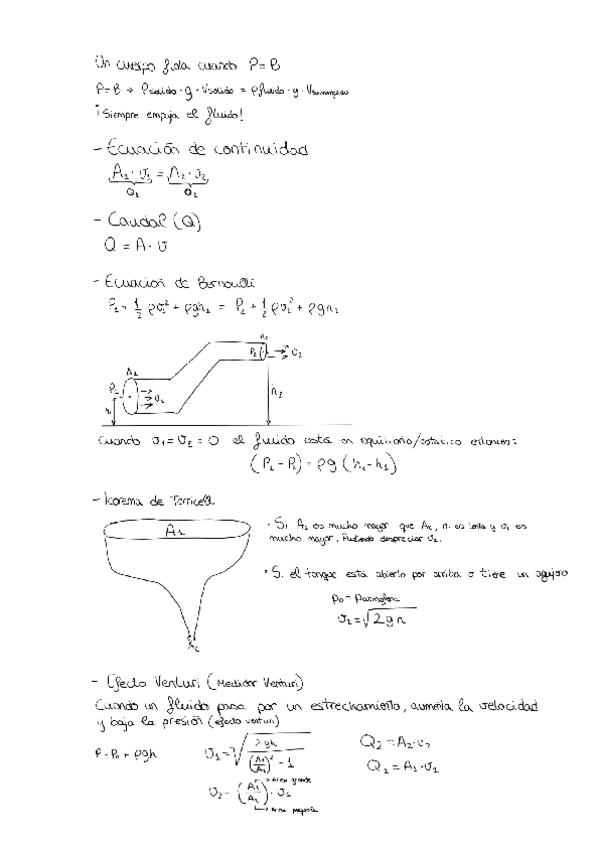 Un cuerpo flota cuando P=B
P=B → ρsolido · g · Vsolido = ρfluido · g · Vsumergido
¡Siempre empuja el fluido!
- Ecuación de continuidad
A₁ · v₁ = A₂ · v₂
Q₁ Q₂
- Caudal (Q)
Q = A · v
- Ecuación de Bernoulli
P₁ + ½ ρv₁² + ρgh₁ = P₂ + ½ ρv₂² + ρgh₂
A₂
P₂ → v₂
A₁
P₁ → v₁
h₁
h₂
Cuando v₁ = v₂ = 0 el fluido está en equilibrio/estático entonces:
(P₁ - P₂) = ρg (h₂ - h₁)
- Teorema de Torricelli
A₁
A₂
· Si A₁ es mucho mayor que A₂, es lenta y v₂ es
mucho mayor. Pudiendo despreciar
· Si el tanque está abierto por arriba o tiene un agujero
p₀ = patmosfera
v₂ = √2gh
- Efecto Venturi (Medidor Venturi)
Cuando un fluido pasa por un estrechamiento, aumenta la velocidad
y baja la presión (efecto venturi)
P = P₀ + ρgh
v₁ = √(2gh / ((A₁/A₂)² - 1))
Q₂ = A₂ · v₂
Q₁ = A₁ · v₁
v₂ = (A₁/A₂) · v₁
→ Área grande
→ Área pequeña